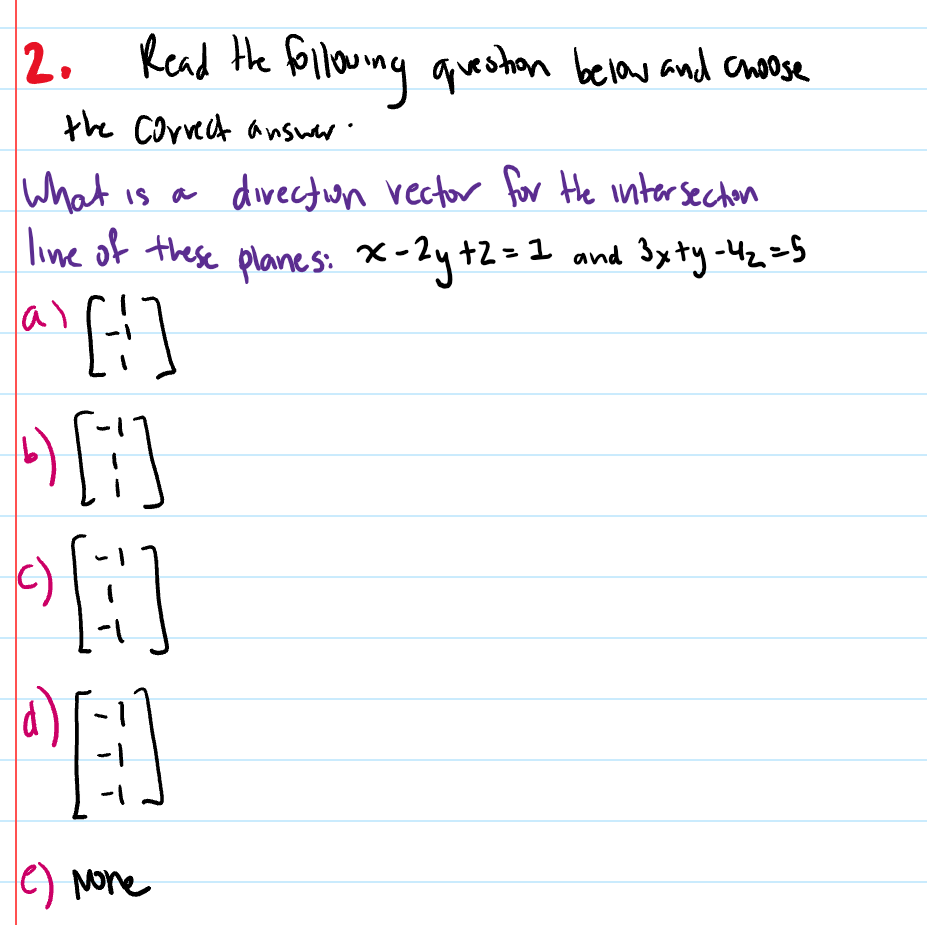 2. Read the following question below and choose
the correct answer.
What is a direction vector for the intersection
line of these planes: x-2y+z=1 and 3x+y-4z=5
a) [1
-1
1]
b) [-1
1
1]
c) [-1
1
-1]
d) [-1
-1
-1]
e) None